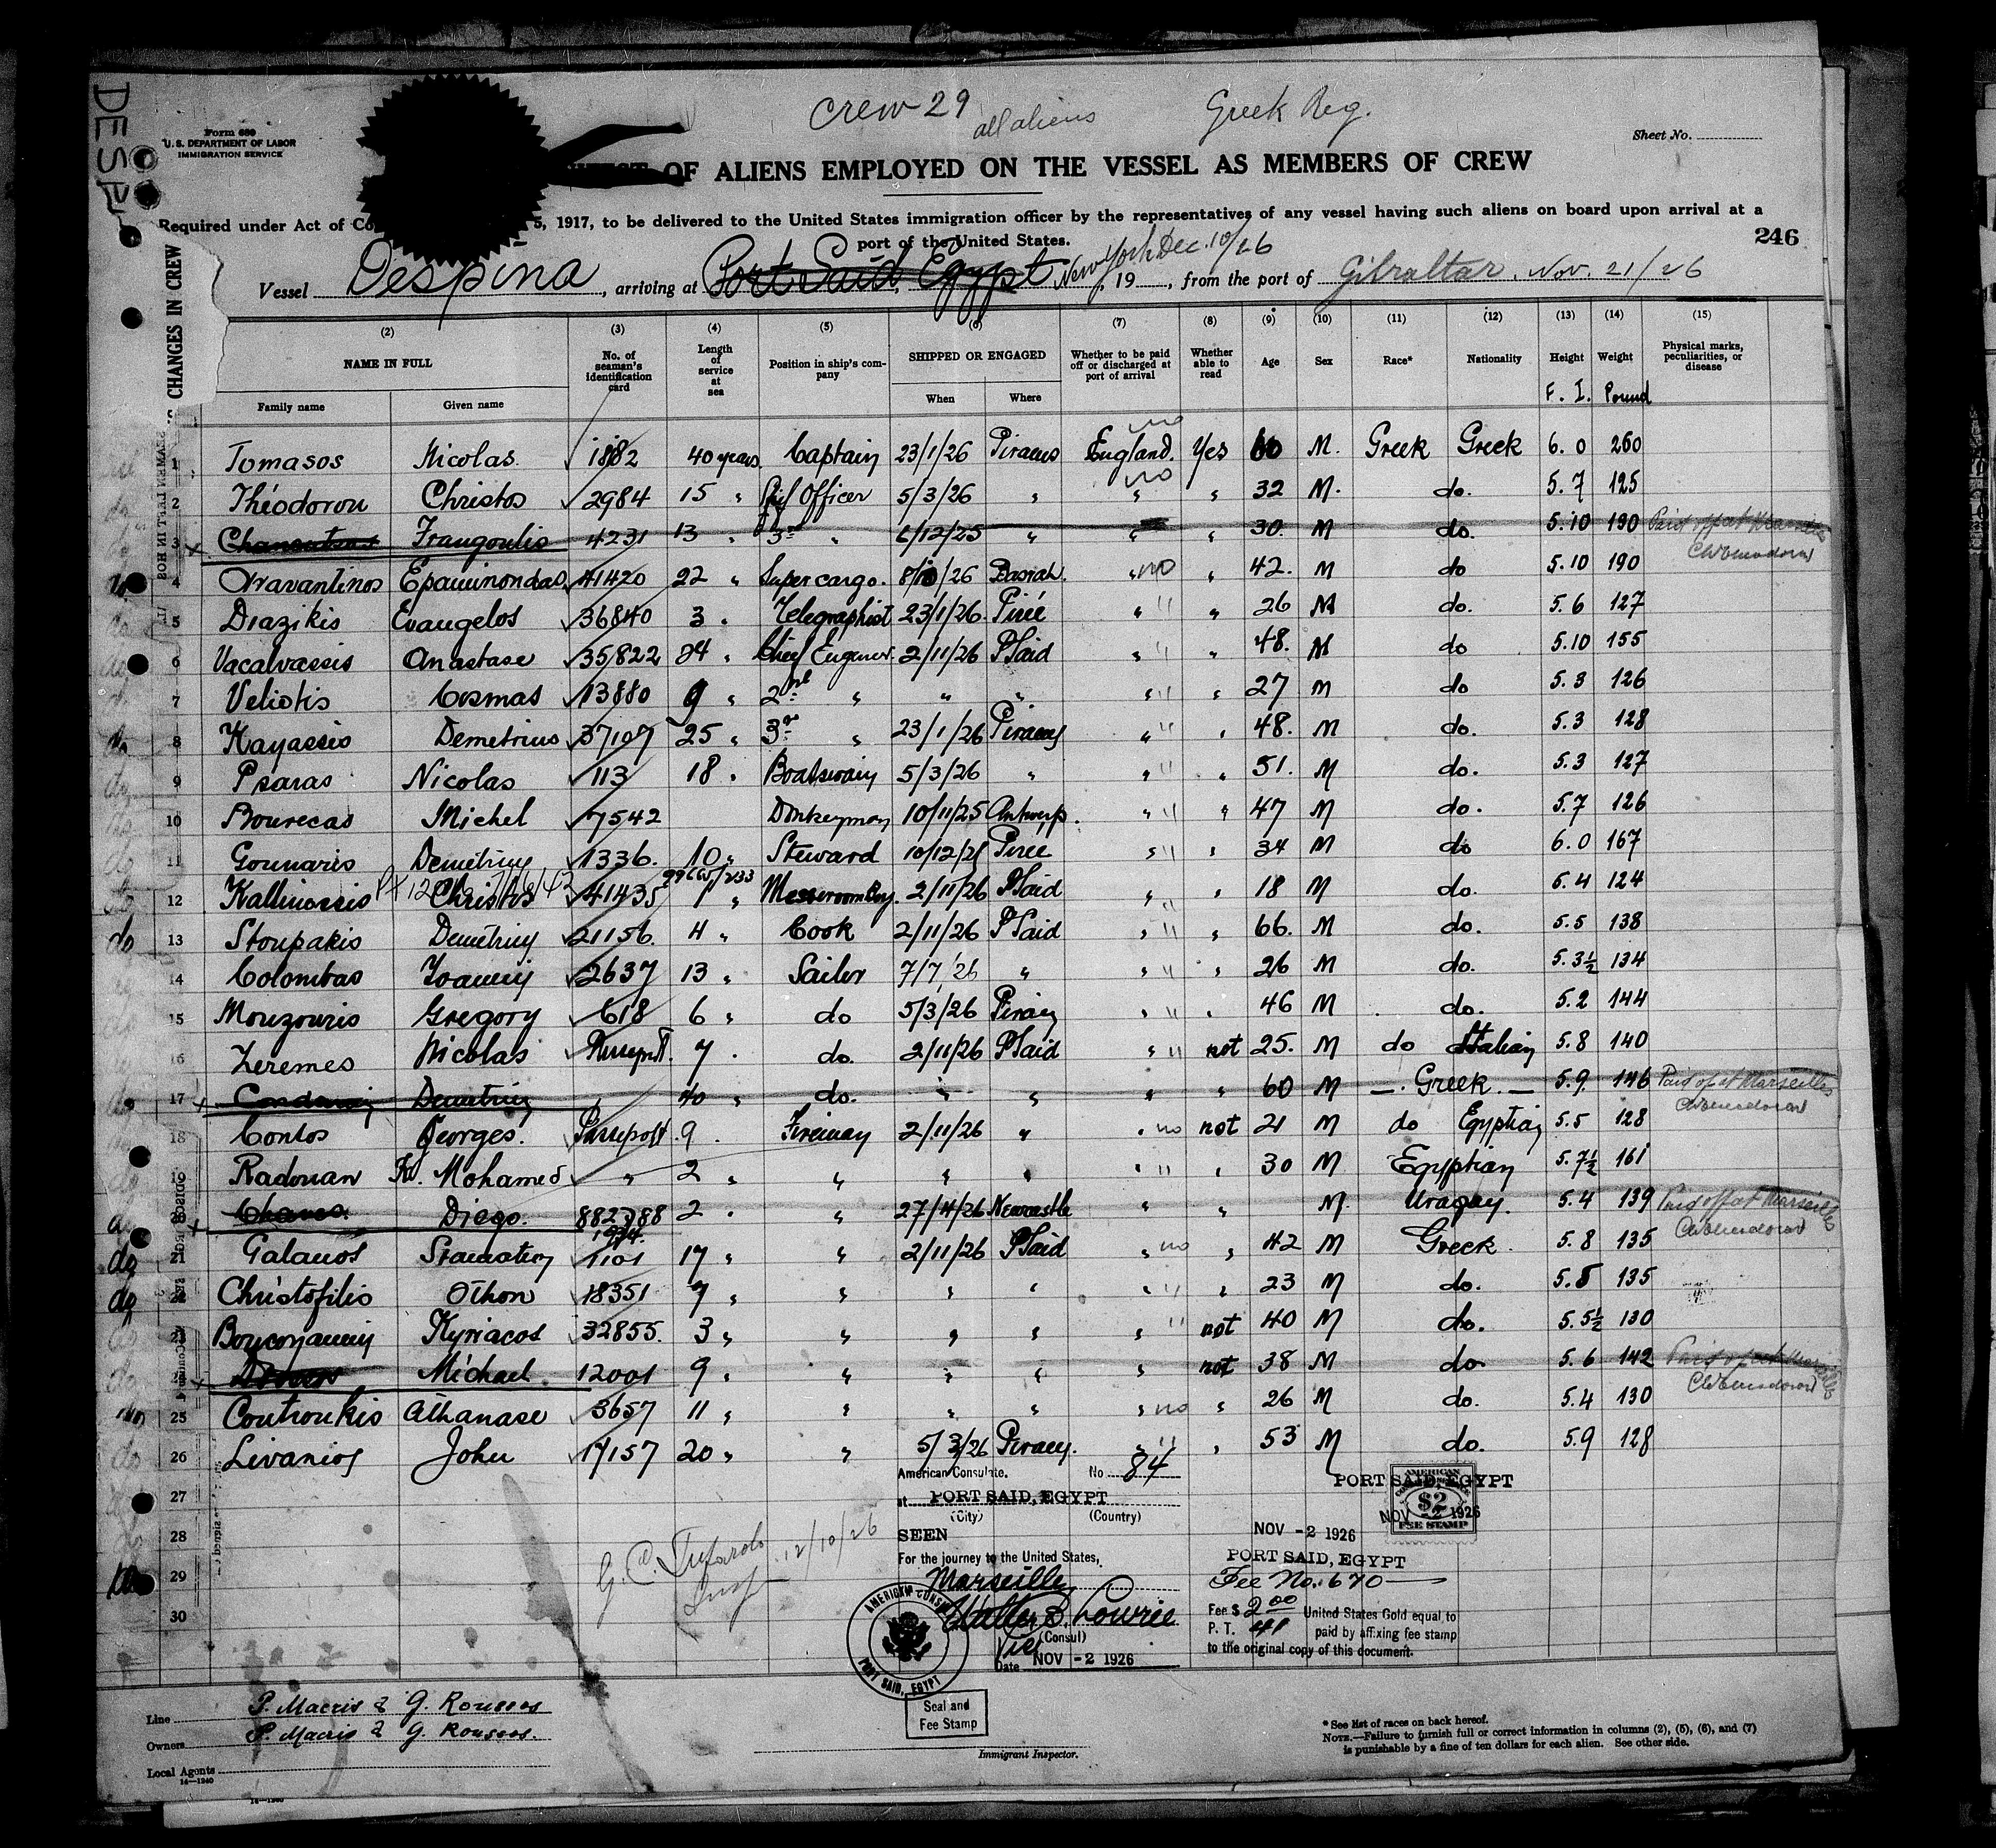 DESP
Crew 29
all aliens
Greek Reg.
Form 689
U. S. DEPARTMENT OF LABOR
IMMIGRATION SERVICE
Sheet No.
OF ALIENS EMPLOYED ON THE VESSEL AS MEMBERS OF CREW
Required under Act of Co 5, 1917, to be delivered to the United States immigration officer by the representatives of any vessel having such aliens on board upon arrival at a
port of the United States.
246
Vessel Despina, arriving at Port Said, Egypt New York Dec. 10/26, 19, from the port of Gibraltar, Nov. 21/26
CHANGES IN CREW
(2) (3) (4) (5) (6) (7) (8) (9) (10) (11) (12) (13) (14) (15)
NAME IN FULL
Family name
Given name
No. of seaman's identification card
Length of service at sea
Position in ship's company
SHIPPED OR ENGAGED
When
Where
Whether to be paid off or discharged at port of arrival
Whether able to read
Age
Sex
Race*
Nationality
Height
Weight
Physical marks, peculiarities, or disease
F. I. Pound
1 Tomasos Nicolas. 1882 40 years. Captain 23/1/26 Piraeus England. no Yes 60 M. Greek Greek 6.0 260
2 Théodorou Christos 2984 15 " Chief Officer 5/3/26 " " no " 32 M. do. 5.7 125
3 Frangoulis 4231 13 " 3rd " 6/12/25 " " " 30. M do. 5.10 190 Paid off at Marseilles
4 Dravantinos Epaminondas 41420 22 " Supercargo. 8/10/26 Basrah. " no " 42. M do 5.10 190
5 Diazikis Evangelos 36840 3 " Telegraphist 23/1/26 Pirée " " " 26 M do. 5.6 127
6 Vacalvassis Anastase 35822 24 " Chief Engener. 2/11/26 PSaid " " " 48. M do 5.10 155
7 Veliotis Cosmas 13880 9 " 2nd " " " " " " 27 M do 5.3 126
8 Kayassis Demetrius 37107 25 " 3rd " 23/1/26 Piraeus " " " 48. M do. 5.3 128
9 Psaras Nicolas 113 18 " Boatswain 5/3/26 " " " " 51. M do. 5.3 127
10 Bourecas Michel 7542 Donkeyman 10/11/25 Antwerp. " " " 47 M do. 5.7 126
11 Gounaris Demétrius 1336. 10 " Steward 10/12/25 Piree " " " 34 M do 6.0 167
12 Kallinossis Christos 41435 1 " Messroom Boy. 2/11/26 PSaid " " " 18 M do. 5.4 124
13 Stoupakis Demétrius 21156. 4 " Cook 2/11/26 PSaid " " " 66. M do. 5.5 138
14 Colombas Ioannis 2637 13 " Sailor 7/7/26 " " " " 26 M do. 5.3½ 134
15 Mouzouris Gregory 618 6 " do 5/3/26 Piraeus " " " 46 M do. 5.2 144
16 Zeremes Nicolas Passeport. 7 " do. 2/11/26 PSaid " " not 25. M do Italian 5.8 140
17 Demetrius 40 " do. " " " " 60 M Greek 5.9. 146 Paid off at Marseilles
18 Contos Georges. Passeport. 9 " Fireman 2/11/26 " " no not 21 M do Egyptian 5.5 128
19 Radouan Mohamed " 2 " " " " " " " 30 M Egyptian 5.7½ 161
20 Diego. 882788 2 " " 27/4/26 Newcastle " " M. Uraguy. 5.4 139 Paid off at Marseilles
21 Galanos Stamatios 1101 17 " " 2/11/26 PSaid " no " 42 M Greek. 5.8 135
22 Christofilis Othon 18351 7 " " " " " " " 23 M do. 5.8 135
23 Boucoyannis Kyriacos 32855. 3 " " " " " " not 40 M do. 5.5½ 130
24 Michael. 12001 9 " " " " " not 38 M do 5.6 142 Paid off at Marseilles
25 Coutroukis Athanase 3657 11 " " " " " no " 26 M do. 5.4 130
26 Livanios John 17157 20 " " 5/3/26 Piraeus. " " " 53 M do. 5.9 128
27
28
29
30
American Consulate. No 84
at PORT SAID, EGYPT
(City) (Country)
SEEN
For the journey to the United States,
Marseille
Walter B. Lowrie
Vice (Consul)
Date NOV -2 1926
AMERICAN CONSULATE
PORT SAID, EGYPT
Seal and
Fee Stamp
PORT SAID, EGYPT
AMERICAN
$2
FEE STAMP
NOV -2 1926
NOV -2 1926
PORT SAID, EGYPT
Fee No. 670
Fee $ 2.00 United States Gold equal to
P. T. 41 paid by affixing fee stamp
to the original copy of this document.
12/10/26
Line P. Macris & G. Roussos
Owners P. Macris & G. Roussos.
Local Agents
14—1240
Immigrant Inspector.
* See list of races on back hereof.
NOTE.—Failure to furnish full or correct information in columns (2), (5), (6), and (7)
is punishable by a fine of ten dollars for each alien. See other side.